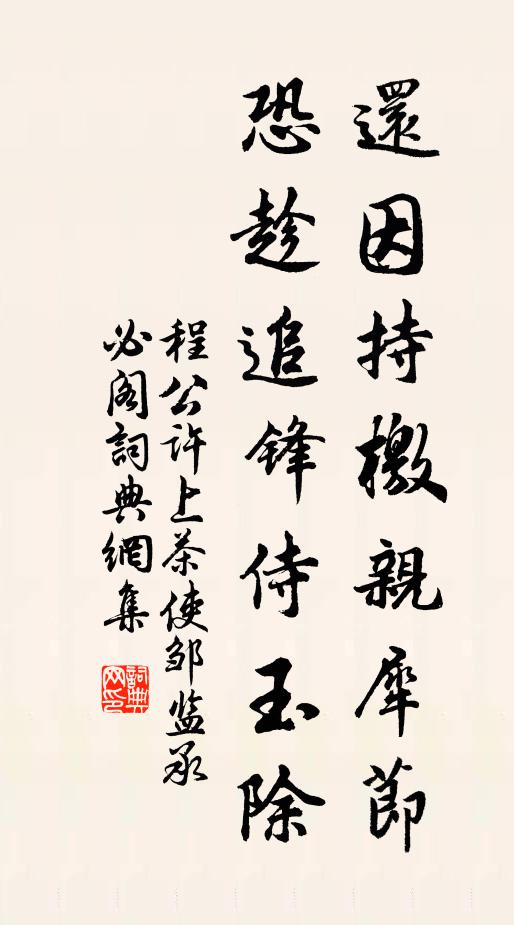 還因持檄親犀節
恐趁追鋒侍玉除
程公许上茶使邹监丞
必阁詞典網集
詞典网印